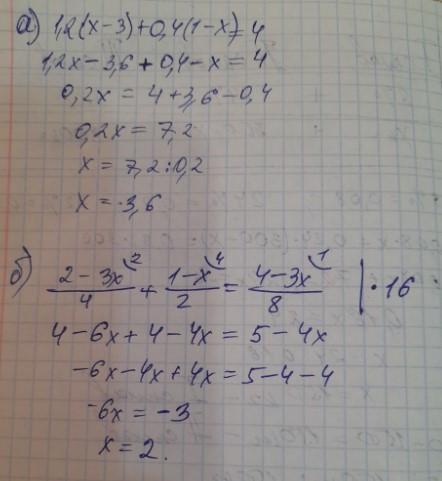 а) 1,2(x-3)+0,4(1-x)=4
1,2x-3,6+0,4-x=4
0,2x=4+3,6-0,4
0,2x=7,2
x=7,2:0,2
x=3,6
б) (2-3x)/4 (2 + (1-x)/2 (4 = (4-3x)/8 (1 | ·16
4-6x+4-4x=5-4x
-6x-4x+4x=5-4-4
-6x=-3
x=2.